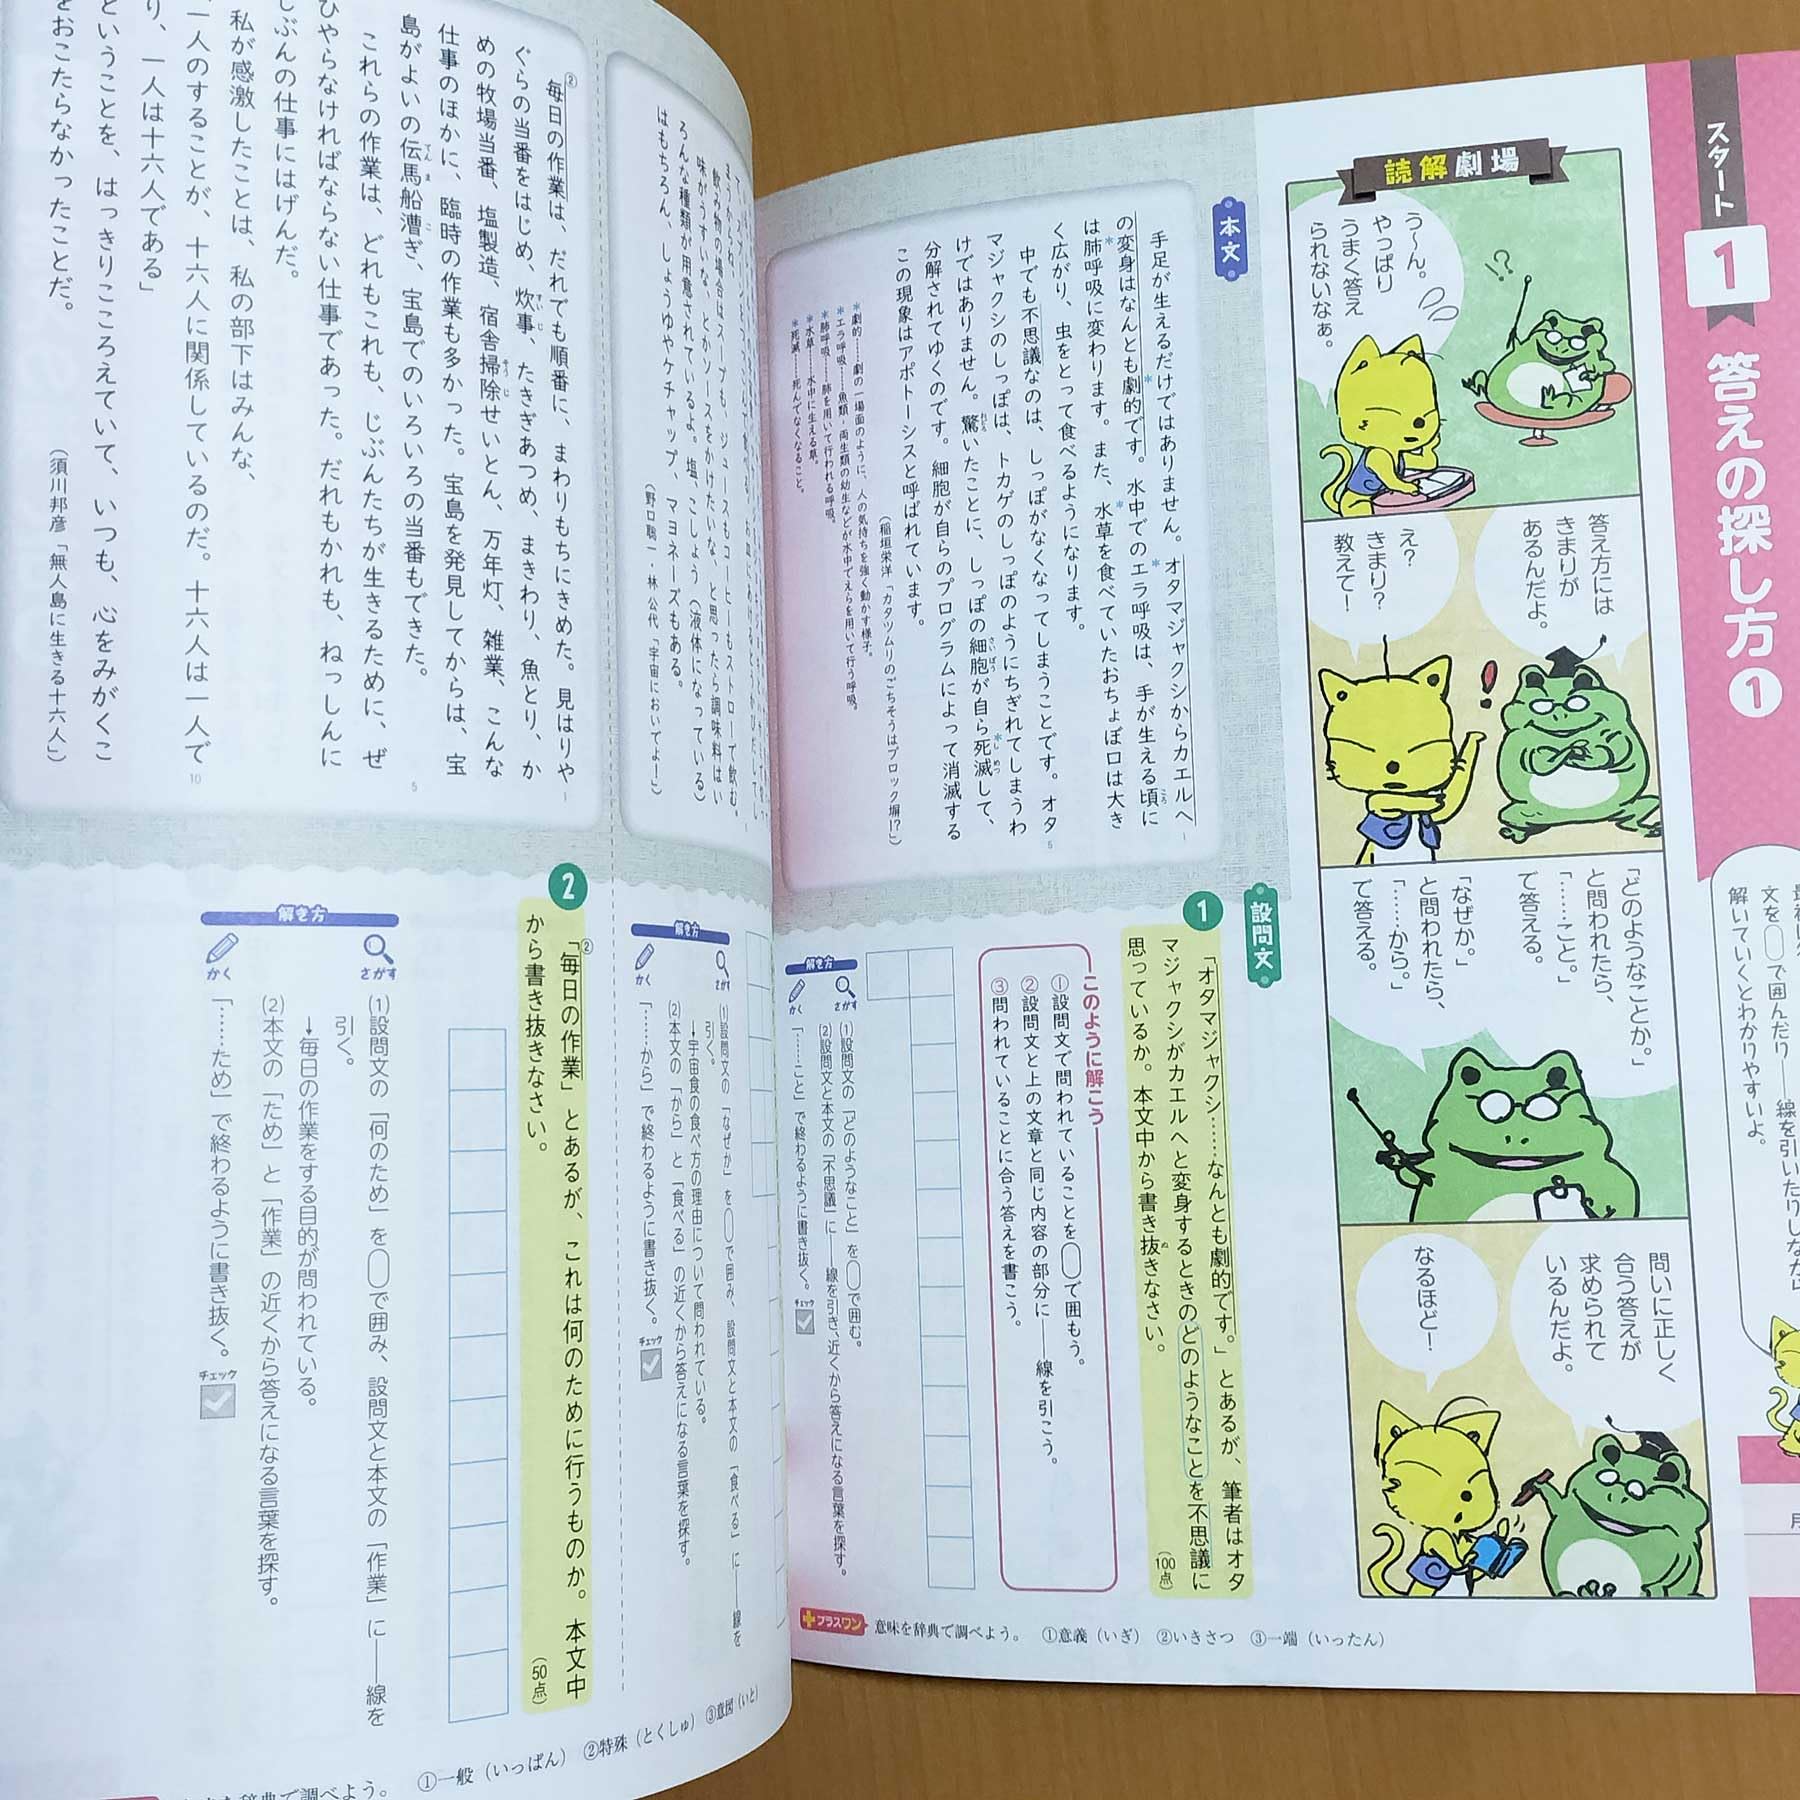 スタート
1
答えの探し方❶
文を◯で囲んだり――線を引いたりしながら
解いていくとわかりやすいよ。
月
読解劇場
う〜ん。
やっぱり
うまく答え
られないなぁ。
!?
答え方には
きまりが
あるんだよ。
え?
きまり?
教えて!
「どのようなことか。」
と問われたら、
「……こと。」
で答える。
「なぜか。」
と問われたら、
「……から。」
で答える。
問いに正しく
合う答えが
求められて
いるんだよ。
なるほど!
本文
手足が生えるだけではありません。オタマジャクシからカエルへ
の変身はなんとも劇的です。水中でのエラ呼吸は、手が生える頃に
は肺呼吸に変わります。また、水草を食べていたおちょぼ口は大き
く広がり、虫をとって食べるようになります。
中でも不思議なのは、しっぽがなくなってしまうことです。オタ
マジャクシのしっぽは、トカゲのしっぽのようにちぎれてしまうわ
けではありません。驚いたことに、しっぽの細胞が自ら死滅して、
分解されてゆくのです。細胞が自らのプログラムによって消滅する
この現象はアポトーシスと呼ばれています。
(稲垣栄洋「カタツムリのごちそうはブロック塀!?」)
＊劇的……劇の一場面のように、人の気持ちを強く動かす様子。
＊エラ呼吸……魚類・両生類の幼生などが水中でえらを用いて行う呼吸。
＊肺呼吸……肺を用いて行われる呼吸。
＊水草……水中に生える草。
＊死滅……死んでなくなること。
設問文
1
「オタマジャクシ……なんとも劇的です。」とあるが、筆者はオタ
マジャクシがカエルへと変身するときのどのようなことを不思議に
思っているか。本文中から書き抜きなさい。
(100点)
このように解こう
①設問文で問われていることを◯で囲もう。
②設問文と上の文章と同じ内容の部分に――線を引こう。
③問われていることに合う答えを書こう。
解き方
さがす
(1)設問文の「どのようなこと」を◯で囲む。
(2)設問文と本文の「不思議」に――線を引き、近くから答えになる言葉を探す。
かく
「……こと」で終わるように書き抜く。
チェック
プラスワン 意味を辞典で調べよう。 ①意義(いぎ) ②いきさつ ③一端(いったん)
飲み物の場合はスープも、ジュースもコーヒーもストローで飲む。
味がうすいな、とかソースをかけたいな、と思ったら調味料はい
ろんな種類が用意されているよ。塩、こしょう(液体になっている)
はもちろん、しょうゆやケチャップ、マヨネーズもある。
(野口聡一・林公代「宇宙においでよ!」)
解き方
さがす
(1)設問文の「なぜか」を◯で囲み、設問文と本文の「食べる」に――線を
引く。
→宇宙食の食べ方の理由について問われている。
(2)本文の「から」と「食べる」の近くから答えになる言葉を探す。
かく
「……から」で終わるように書き抜く。
チェック
②毎日の作業は、だれでも順番に、まわりもちにきめた。見はりや
ぐらの当番をはじめ、炊事、たきぎあつめ、まきわり、魚とり、か
めの牧場当番、塩製造、宿舎掃除せいとん、万年灯、雑業、こんな
仕事のほかに、臨時の作業も多かった。宝島を発見してからは、宝
島がよいの伝馬船漕ぎ、宝島でのいろいろの当番もできた。
これらの作業は、どれもこれも、じぶんたちが生きるために、ぜ
ひやらなければならない仕事であった。だれもかれも、ねっしんに
じぶんの仕事にはげんだ。
私が感激したことは、私の部下はみんな、
「一人のすることが、十六人に関係しているのだ。十六人は一人で
り、一人は十六人である」
ということを、はっきりこころえていて、いつも、心をみがくこ
をおこたらなかったことだ。
(須川邦彦「無人島に生きる十六人」)
2
「②毎日の作業」とあるが、これは何のために行うものか。本文中
から書き抜きなさい。
(50点)
解き方
さがす
(1)設問文の「何のため」を◯で囲み、設問文と本文の「作業」に――線を
引く。
→毎日の作業をする目的が問われている。
(2)本文の「ため」と「作業」の近くから答えになる言葉を探す。
かく
「……ため」で終わるように書き抜く。
チェック
辞典で調べよう。 ①一般(いっぱん) ②特殊(とくしゅ) ③意図(いと)